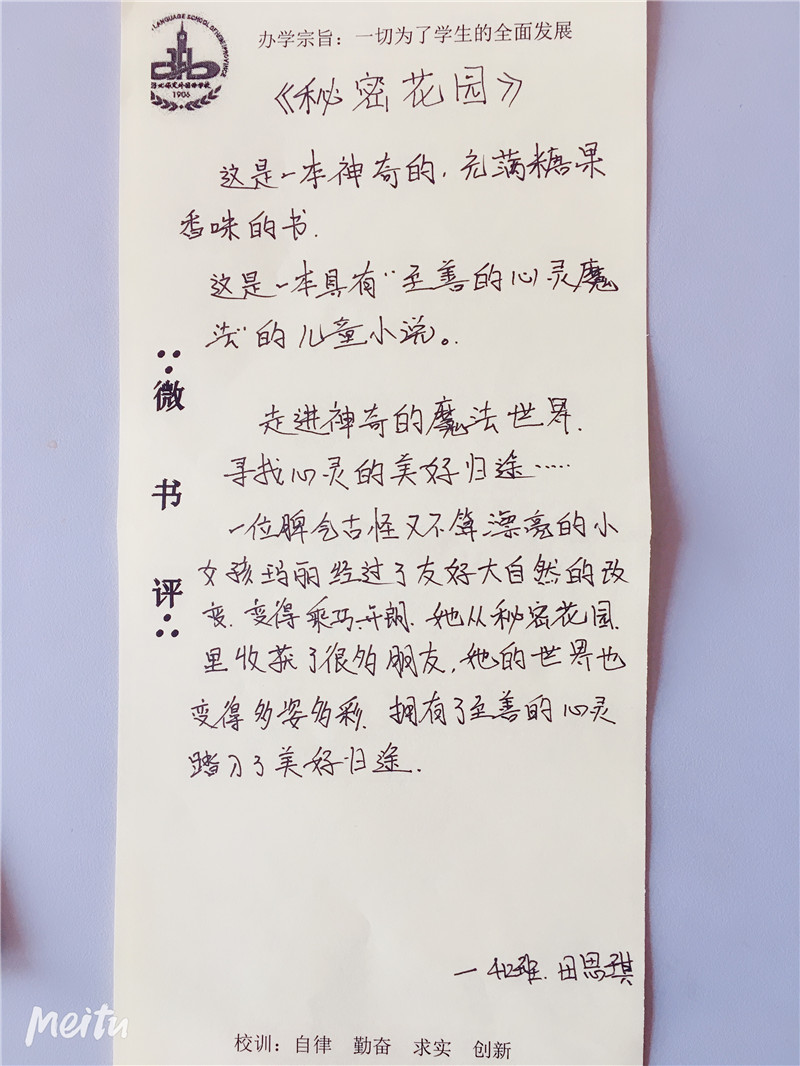 办学宗旨：一切为了学生的全面发展
1906
《秘密花园》
这是一本神奇的，充满糖果
香味的书.
这是一本具有“至善的心灵魔
法”的儿童小说。
微书评
走进神奇的魔法世界.
寻找心灵的美好归途……
一位脾气古怪又不算漂亮的小
女孩玛丽经过了友好大自然的改
变.变得乖巧开朗.她从秘密花园
里收获了很多朋友,她的世界也
变得多姿多彩.拥有了至善的心灵
踏了美好归途.
田思琪
校训：自律 勤奋 求实 创新
Meitu